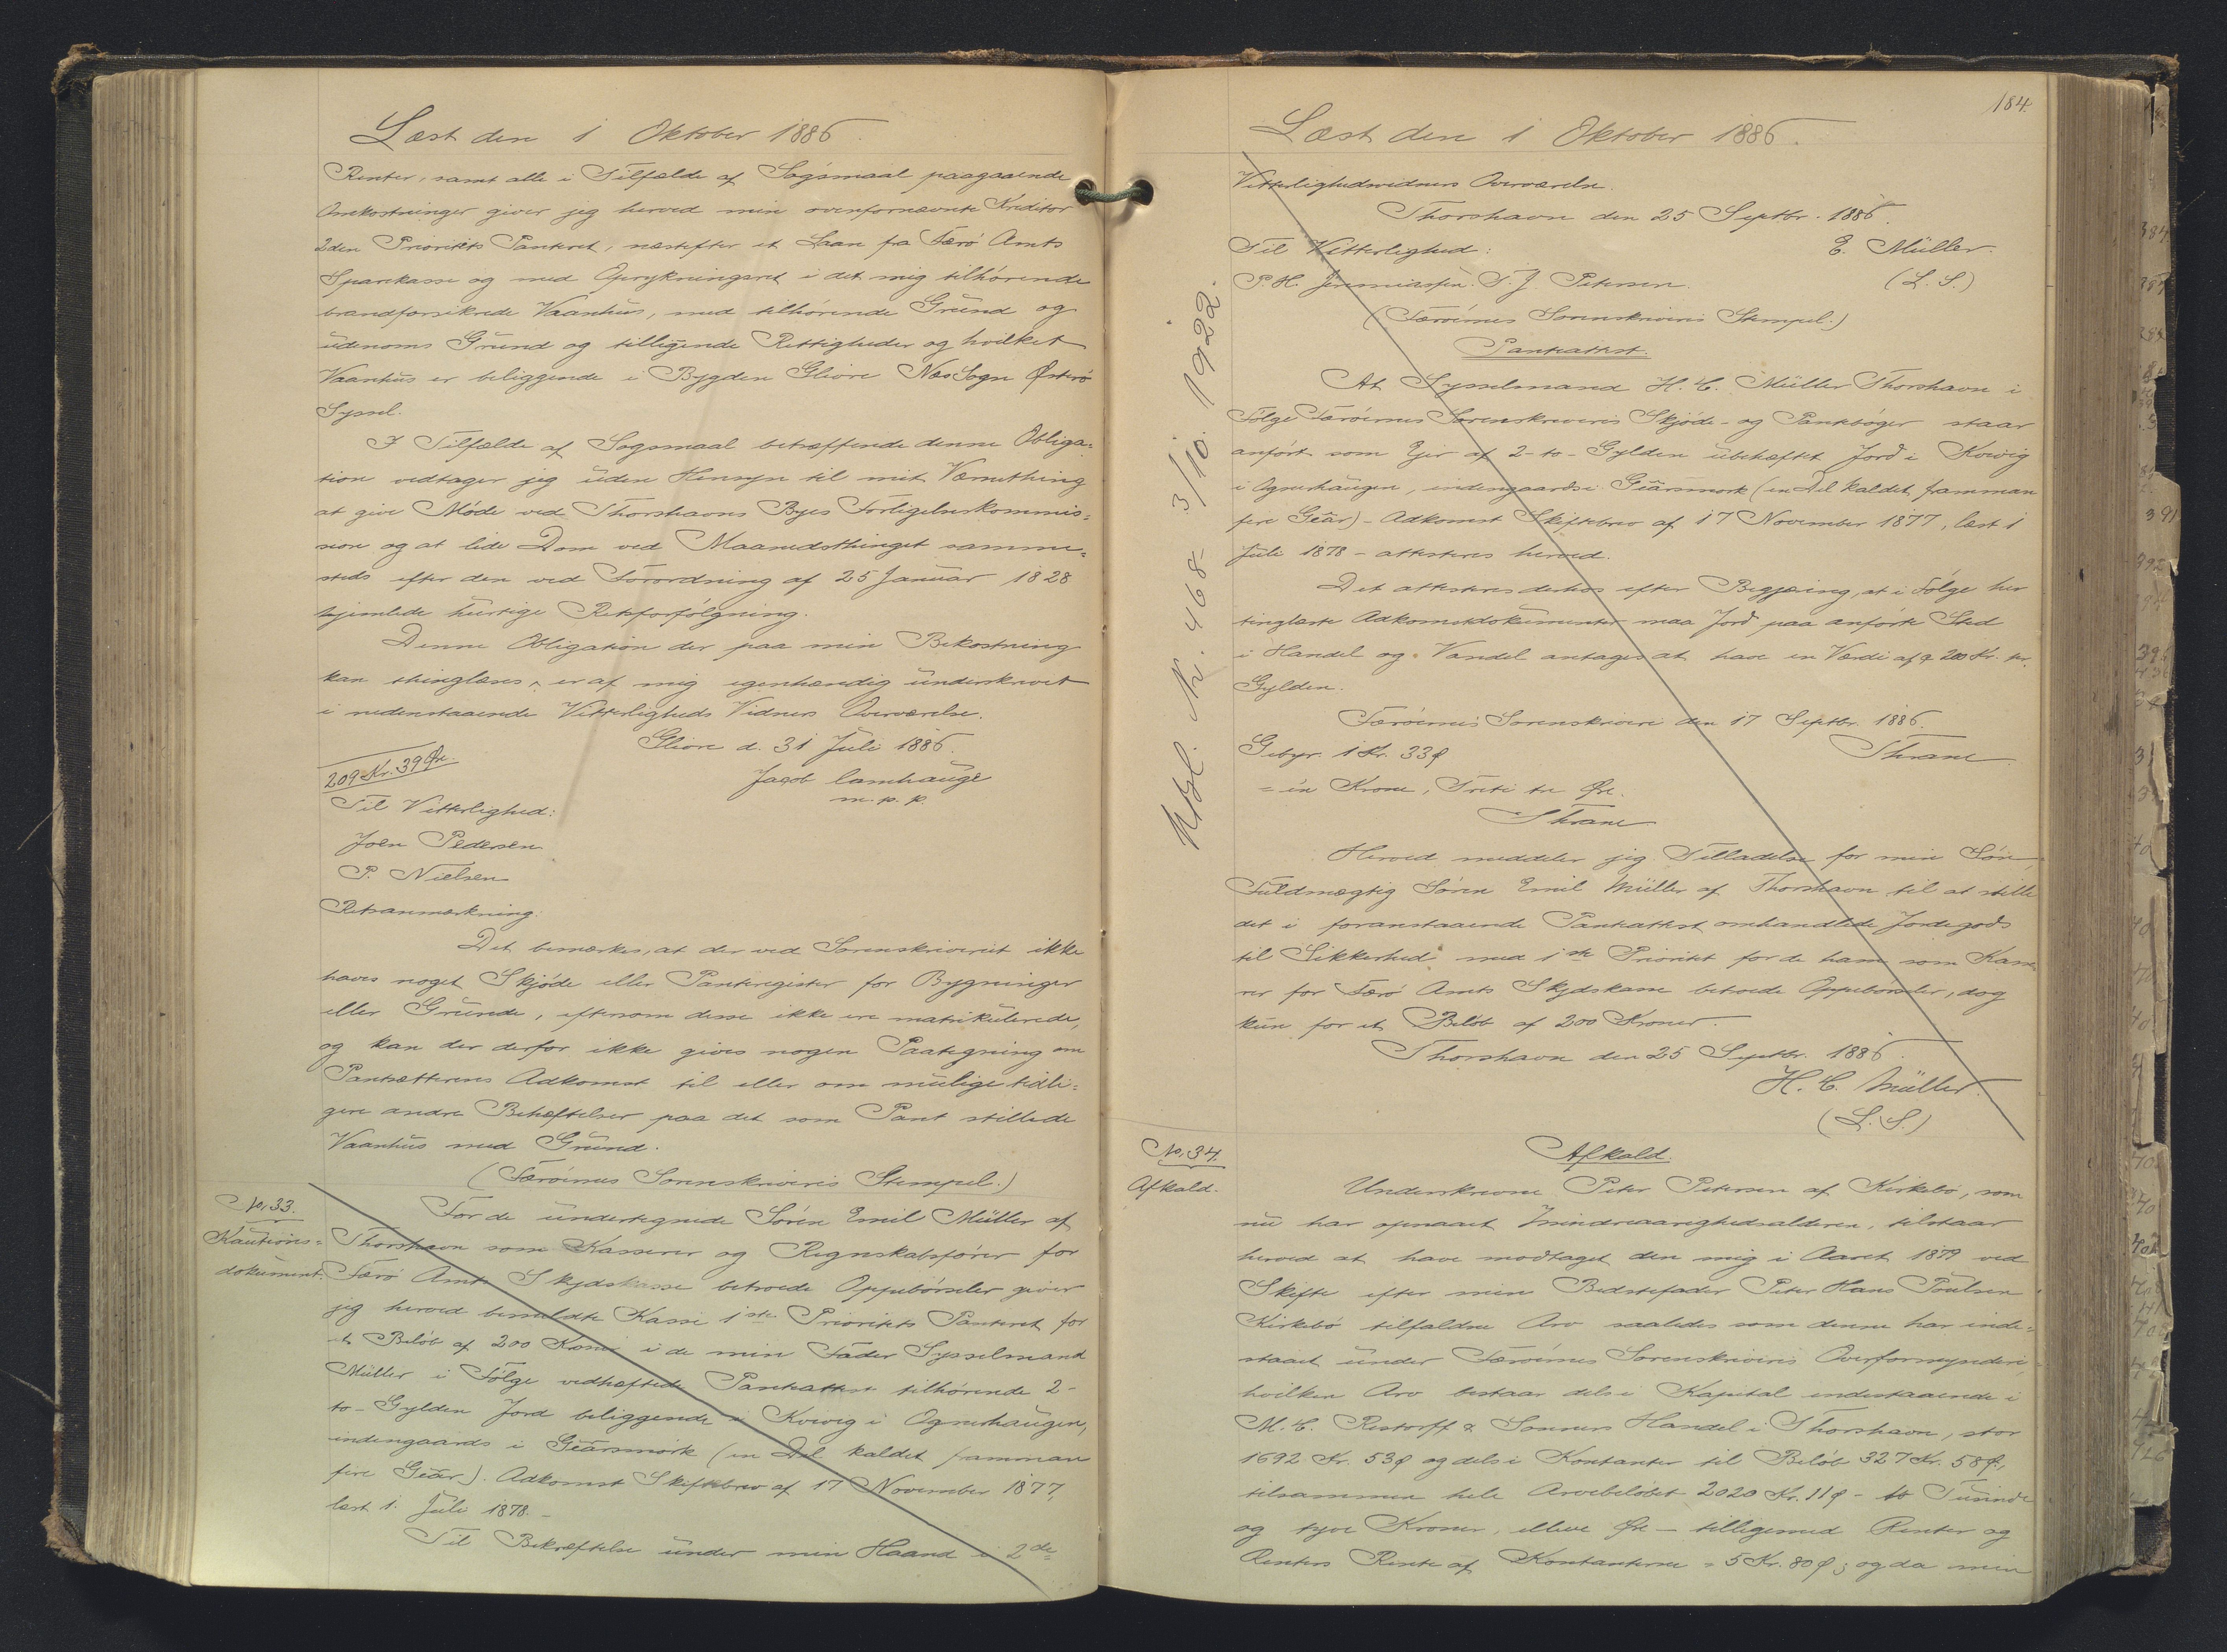 Læst den 1 Oktober 1886.
Renter, samt alle i Tilfælde af Søgsmaal paagaaende
Omkostninger giver jeg herved min ovenfornævnte Kreditor
2den Prioritets Panteret, næstefter et Laan fra Færø Amts
Sparekasse og med Oprykningsret i det mig tilhørende
brandforsikrede Vaanhus, med tilhørende Grund og
udenoms Grund og tilligende Rettigheder og hvilket
Vaanhus er beliggende i Bygden Glivre Næs Sogn Østerø
Syssel.
I Tilfælde af Søgsmaal betræffende denne Obliga=
tion vedtager jeg uden Hensyn til mit Værnething
at give Møde ved Thorshavns Byes Forligelseskommis=
sion og at lide Dom ved Maanedsthinget samme=
steds efter den ved Forordning af 25 Januar 1828
hjemlede hurtige Retsforfølgning.
Denne Obligation der paa min Bekostning
kan thinglæses, er af mig egenhændig underskrevet
i nedenstaaende Vitterligheds Vidners Overværelse.
Glivre d. 31 Juli 1886.
209 Kr. 39 Øre.
Jacob Lamhauge
m. p. p.
Til Vitterlighed:
Joen Pedersen
P. Nielsen
Retsanmærkning:
Det bemærkes, at der ved Sorenskriveriet ikke
haves noget Skjøde eller Panteregister for Bygninger
eller Grunde, eftersom disse ikke ere matrikulerede,
og kan der derfor ikke gives nogen Paategning om
Pantsætterens Adkomst til eller om mulige tidli=
gere andre Behæftelser paa det som Pant stillede
Vaanhus med Grund.
(Færøernes Sorenskriveris Stempel.)
No. 33.
Kautions=
dokument.
For de undertegnede Søren Emil Müller af
Thorshavn som Kasserer og Regnskabsfører for
Færø Amts Skydskasse betroede Oppebørseler giver
jeg herved bemeldte Kasse 1ste Prioritets Panteret for
et Beløb af 200 Kroner i de min Fader Sysselmand
Müller i Følge vedhæftede Panteattest tilhørende 2-
to- Gylden Jord beliggende i Kvivig i Ognerhaugen,
indengaards i Geârsmørk (en Del kaldet framman
fire Geâr). Adkomst Skiftebrev af 17 November 1877,
læst 1. Juli 1878.-
Til Bekræftelse under min Haand i 2de
184.
Læst den 1 Oktober 1886.
Vitterlighedsvidners Overværelse.
Thorshavn den 25 Septbr. 1886.
Til Vitterlighed: E. Müller.
P. H. Jeremiassen. T. J. Petersen. (L. S.)
(Færøernes Sorenskriveris Stempel.)
Panteattest.
At Sysselmand H. C. Müller Thorshavn i
Følge Færøernes Sorenskriveris Skjøde- og Pantebøger staar
anført som Ejer af 2-to-Gylden ubehæftet Jord i Kvivig
i Ognerhaugen, indengaards i Geârsmørk (en Del kaldet framman
fire Geâr)- Adkomst Skiftebrev af 17 November 1877, læst 1
Juli 1878 - attesteres herved.
Det attesteres derhos efter Begjæring, at i Følge her
tinglæste Adkomstdokumenter maa Jord paa anførte Sted
i Handel og Vandel antages at have en Værdi af c. 200 Kr. pr.
Gylden.
Færøernes Sorenskriveri den 17 Septbr. 1886.
Gebyr. 1 Kr. 33 Ø Thrane.
= en Krone, Treti tre Øre.
Thrane
Herved meddeler jeg Tilladelse for min Søn
Fuldmægtig Søren Emil Müller af Thorshavn til at stille
det i foranstaaende Panteattest omhandlede Jordegods
til Sikkerhed med 1ste Prioritet for de ham som Kasse
rer for Færø Amts Skydskasse betroede Oppebørseler, dog
kun for et Beløb af 200 Kroner.
Thorshavn den 25 Septbr. 1886.
H. C. Müller.
(L. S.)
Udsl. Nr. 468- 3/10. 1922.
No. 34.
Afkald.
Afkald.
Underskrevne Peter Petersen af Kirkebø, som
nu har opnaaet Mindreaarighedsalderen, tilstaar
herved at have modtaget den mig i Aaret 1879 ved
Skifte efter min Bedstefader Peter Hans Poulsen
Kirkebø tilfaldne Arv saaledes som denne har inde=
staaet under Færøernes Sorenskriveris Overformynderi,
hvilken Arv bestaar dels i Kapital indestaaende i
M. C. Restorff & Sønners Handel i Thorshavn, stor
1692 Kr. 53 Ø og dels i Kontanter til Beløb 327 Kr. 58 Ø.,
tilsammen hele Arvebeløbet 2020 Kr. 11 Ø - to Tusinde
og tyve Kroner, elleve Øre - tilligemed Renter og
Renters Rente af Kontanterne = 5 Kr. 80 Ø; og da min